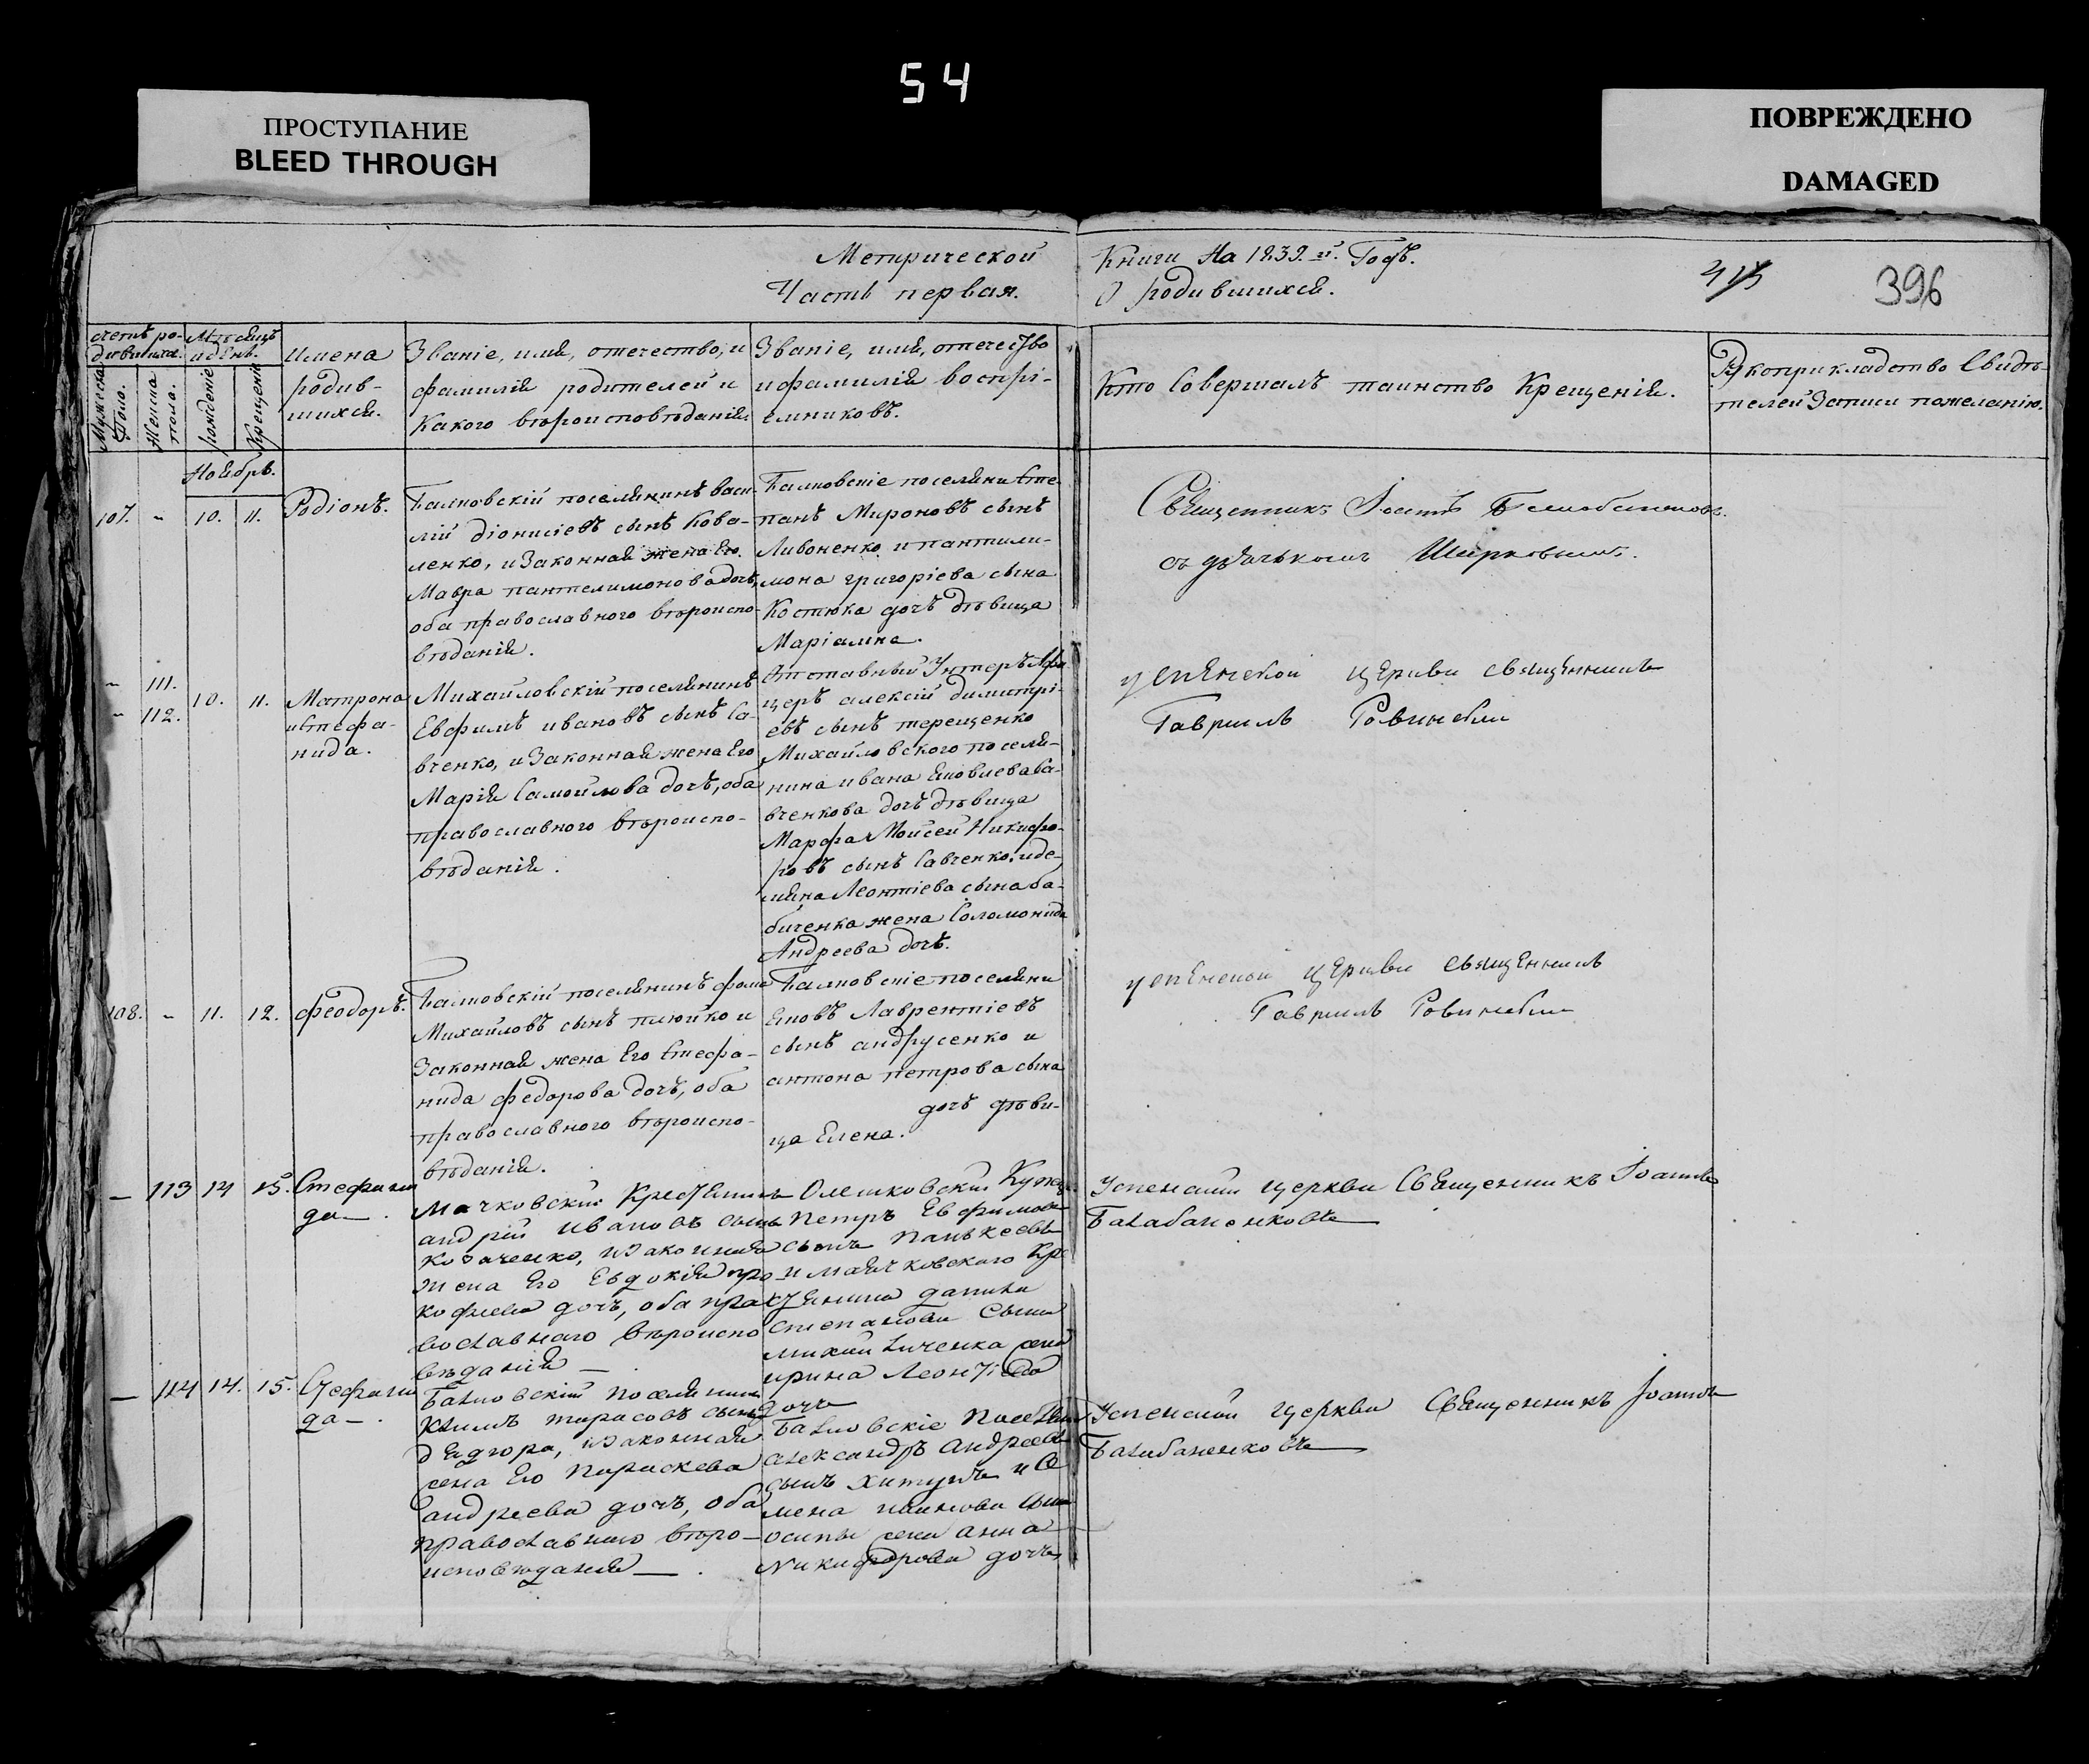 54
ПРОСТУПАНИЕ
BLEED THROUGH
ПОВРЕЖДЕНО
DAMAGED
Метрической Книги На 1839.й Годъ.
Часть первая. О родившихся.
396
счетъ ро-
дившихся.
Мужеска
пола.
Женска
пола.
Мѣсяцъ
и день.
рожденіе
Крещенія
имена
родив-
шихся.
Званіе, имя, отечество, и
фамилія родителей и
Какого вѣроисповѣданія.
Званіе, имя, отечество
и фамилія воспрі-
емниковъ.
Кто Совершалъ таинство Крещенія.
Рукоприкладство Свидѣ-
телей Записи пожеланію.
Ноябрь.
107. - 10. 11. Родіонъ.
поселянинъ васи-
лій діонисіевъ сынъ Кова-
ленко, и Законная жена Его
Мавра пантелимонова дочь,
оба православного вѣроиспо-
вѣданія.
поселяни Сте-
панъ Мироновъ сынъ
Ливоненко и пантили-
мона григоріева сына
Костюка дочь дѣвица
Маріамна.
Священникъ Іоаннъ
съ дьячькомъ
- 111.
- 112.
10. 11. Матрона
и Стефа-
нида.
Михайловскій поселянинъ
Евфимъ ивановъ сынъ Са-
вченко, и Законная жена Его
Марія Самойлова дочь, оба
православного вѣроиспо-
вѣданія.
Отставный Унтеръ Афи
церъ алексій димитрі-
евъ сынъ терещенко
Михайловского поселя-
нина ивана Яковлева Са-
вченкова дочь дѣвица
Марфа Моисей Никифо-
ровъ сынъ Савченко, и де-
мяна Леонтіева сына ба-
биченка жена Соломонида
Андреева дочь.
успенской церкви священникъ
Гавриилъ
108. - 11. 12. Феодоръ.
поселянинъ фома
Михайловъ сынъ и
Законная жена Его Стефа-
нида федорова дочь, оба
православного вѣроиспо-
вѣданія.
поселяни
Яковъ Лаврентіевъ
сынъ андрусенко и
антона петрова сына
дочь дѣви-
ца Елена.
успенской церкви священникъ
Гавриилъ
- 113 14 15. Стефани
да - .
андрій ивановъ сынъ
Козаченко, и законная
жена Его Евдокія про-
кофиева дочь, оба пра
вославнаго вѣроиспо
вѣданія -
Олешковскій Купец
петръ Евфимовъ
сынъ
и маячковского Кр
данила
Степанова сына
жена
ирина Леонтіева
дочь
Успенской церкви Священникъ Іоаннъ
Балабаненковъ
- 114 14. 15. Стефани
да - .
Климъ тарасовъ сынъ
и законная
жена Его параскева
андреева дочь, оба
православнаго вѣро-
исповѣданія - .
александръ андреевъ
сынъ и Се
мена сына
осипы жена анна
Никифорова дочь
Успенской церкви Священникъ Іоаннъ
Балабаненковъ